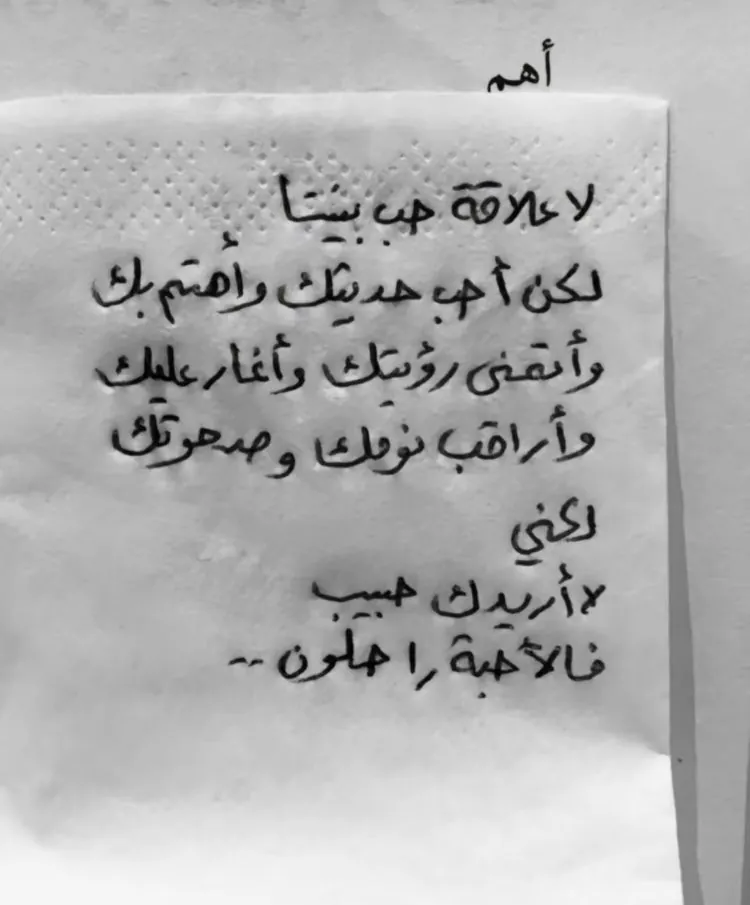 أهم
لا علاقة حب بيننا
لكن أحب حديثك وأهتم بك
وأتمنى رؤيتك وأغار عليك
وأراقب نومك وصحوتك
لكني
لا أريدك حبيب
فالأحبة راحلون ..